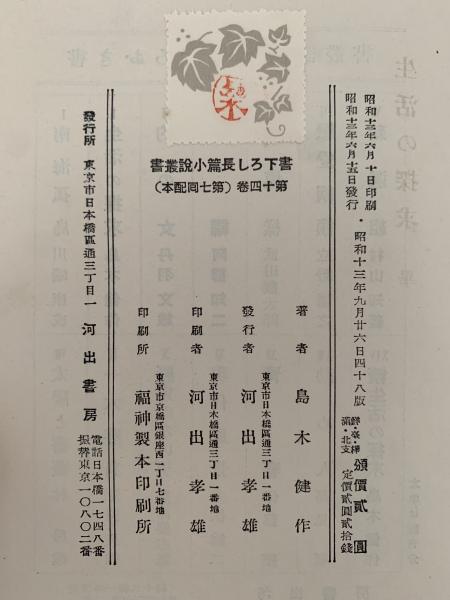 昭和十三年六月十日印刷
昭和十三年六月十五日發行・昭和十三年九月廿六日四十八版
頒價貳圓
鮮・臺・樺
滿・北支 定價貳圓貳拾錢
書下ろし長篇小說叢書
第十四卷(第七回配本)
著者 島木健作
發行者 東京市日本橋區通三丁目一番地
河出孝雄
印刷者 東京市日本橋區通三丁目一番地
河出孝雄
印刷所 東京市京橋區銀座西一丁目七番地
福神製本印刷所
發行所 東京市日本橋區通三丁目一 河出書房
電話日本橋一七四八番
振替東京一〇八〇二番
生活の探求